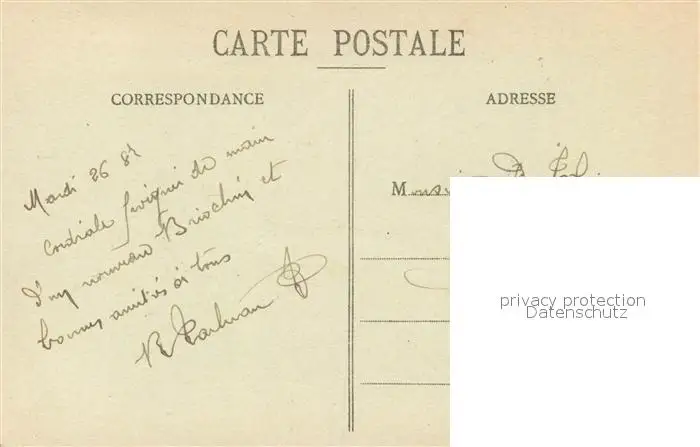 CARTE POSTALE
CORRESPONDANCE
ADRESSE
Mardi 26
Cordiale poignée de main
d'un nouveau Briochin et
bonnes amitiés à tous
privacy protection
Datenschutz